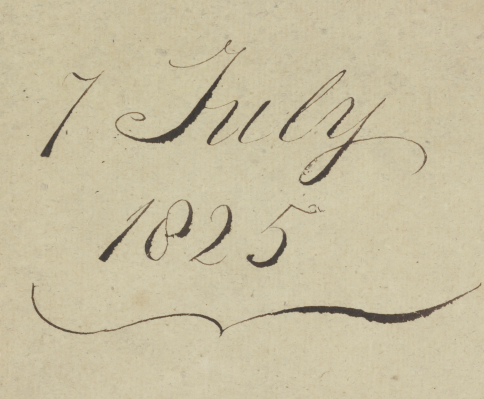 7 July
1825